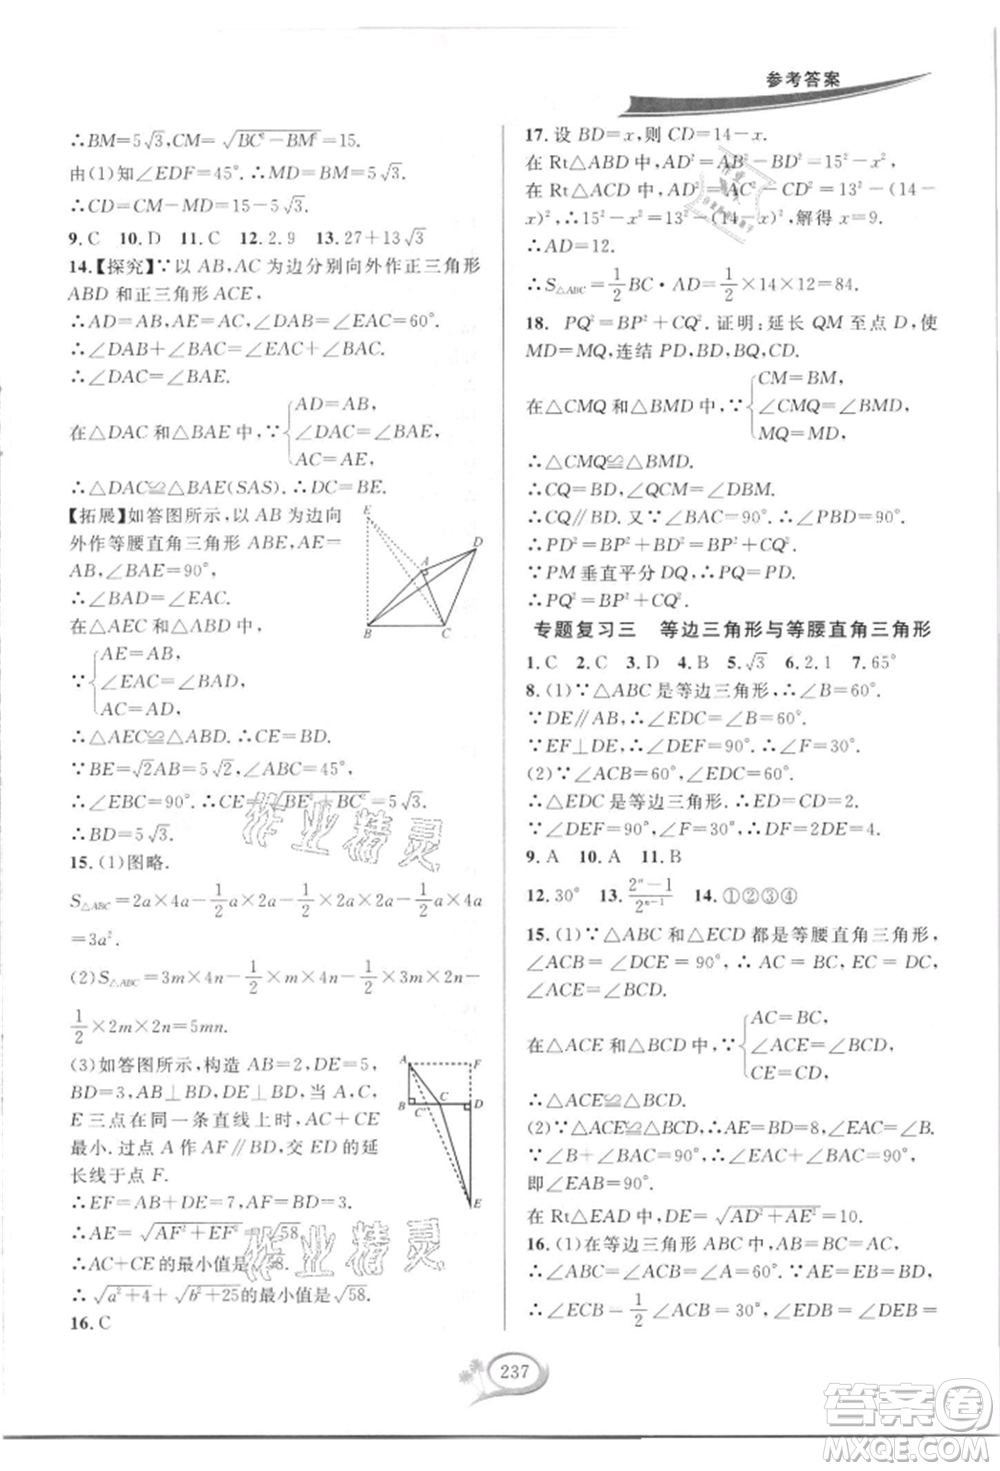 参考答案
∴BM=5√3,CM=√(BC²-BM²)=15.
由(1)知∠EDF=45°.∴MD=BM=5√3.
∴CD=CM-MD=15-5√3.
9.C 10.D 11.C 12.2.9 13.27+13√3
14.【探究】∵以AB,AC为边分别向外作正三角形
ABD和正三角形ACE,
∴AD=AB,AE=AC,∠DAB=∠EAC=60°.
∴∠DAB+∠BAC=∠EAC+∠BAC.
∴∠DAC=∠BAE.
在△DAC和△BAE中,∵{AD=AB,
∠DAC=∠BAE,
AC=AE,
∴△DAC≌△BAE(SAS).∴DC=BE.
【拓展】如答图所示,以AB为边向
外作等腰直角三角形ABE,AE=
AB,∠BAE=90°,
∴∠BAD=∠EAC.
在△AEC和△ABD中,
∵{AE=AB,
∠EAC=∠BAD,
AC=AD,
∴△AEC≌△ABD.∴CE=BD.
∵BE=√2AB=5√2,∠ABC=45°,
∴∠EBC=90°.∴CE=√(BE²+BC²)=5√3.
∴BD=5√3.
E
D
A
B
C
15.(1)图略.
S△ABC=2a×4a-1/2a×2a-1/2×2a×2a-1/2a×4a
=3a².
(2)S△ABC=3m×4n-1/2m×4n-1/2×3m×2n-
1/2×2m×2n=5mn.
(3)如答图所示,构造AB=2,DE=5,
BD=3,AB⊥BD,DE⊥BD,当A,C,
E三点在同一条直线上时,AC+CE
最小.过点A作AF∥BD,交ED的延
长线于点F.
∴EF=AB+DE=7,AF=BD=3.
∴AE=√(AF²+EF²)=√58.
∴AC+CE的最小值是√58.
∴√(a²+4)+√(b²+25)的最小值是√58.
16.C
A
F
B
C'
C
D
E
17.设BD=x,则CD=14-x.
在Rt△ABD中,AD²=AB²-BD²=15²-x²,
在Rt△ACD中,AD²=AC²-CD²=13²-(14-
x)²,∴15²-x²=13²-(14-x)²,解得x=9.
∴AD=12.
∴S△ABC=1/2BC·AD=1/2×14×12=84.
18. PQ²=BP²+CQ².证明:延长QM至点D,使
MD=MQ,连结PD,BD,BQ,CD.
在△CMQ和△BMD中,∵{CM=BM,
∠CMQ=∠BMD,
MQ=MD,
∴△CMQ≌△BMD.
∴CQ=BD,∠C=∠DBM.
∴CQ∥BD.又∵∠BAC=90°,∴∠PBD=90°.
∴PD²=BP²+BD²=BP²+CQ².
∵PM垂直平分DQ,∴PQ=PD.
∴PQ²=BP²+CQ².
专题复习三 等边三角形与等腰直角三角形
1.C 2.C 3.D 4.B 5.√3 6.2.1 7.65°
8.(1)∵△ABC是等边三角形,∴∠B=60°.
∵DE∥AB,∴∠EDC=∠B=60°.
∵EF⊥DE,∴∠DEF=90°.∴∠F=30°.
(2)∵∠ACB=60°,∠EDC=60°,
∴△EDC是等边三角形.∴ED=CD=2.
∵∠DEF=90°,∠F=30°,∴DF=2DE=4.
9.A 10.A 11.B
12.30° 13.(2ⁿ-1)/2ⁿ⁻¹ 14.①②③④
15.(1)∵△ABC和△ECD都是等腰直角三角形,
∠ACB=∠DCE=90°,∴AC=BC,EC=DC,
∠ACE=∠BCD.
在△ACE和△BCD中,∵{AC=BC,
∠ACE=∠BCD,
CE=CD,
∴△ACE≌△BCD.
(2)∵△ACE≌△BCD,∴AE=BD=8,∠EAC=∠B.
∵∠B+∠BAC=90°,∴∠EAC+∠BAC=90°,
即∠EAB=90°.
在Rt△EAD中,DE=√(AD²+AE²)=10.
16.(1)在等边三角形ABC中,BD=AC,
∴∠ECB=1/2∠ACB=30°,∠EDB=∠DEB=
237
作业精灵
作业精灵
答案圈
MXQE.COM